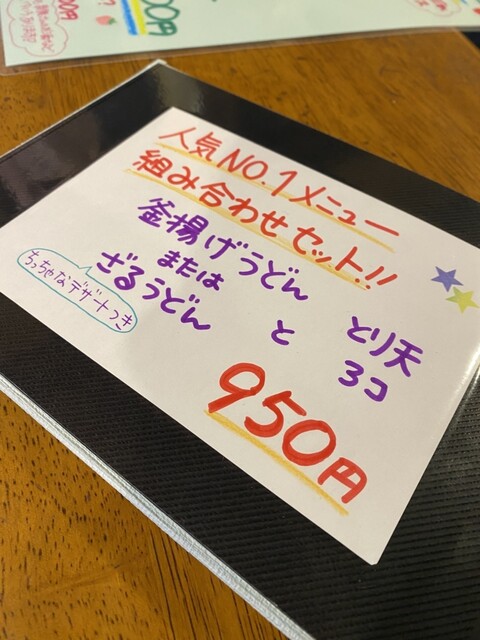 人気NO.1メニュー
組み合わせセット!!
釜揚げうどん
または
ざるうどん
と
とり天
3コ
ちっちゃなデザートつき
950円